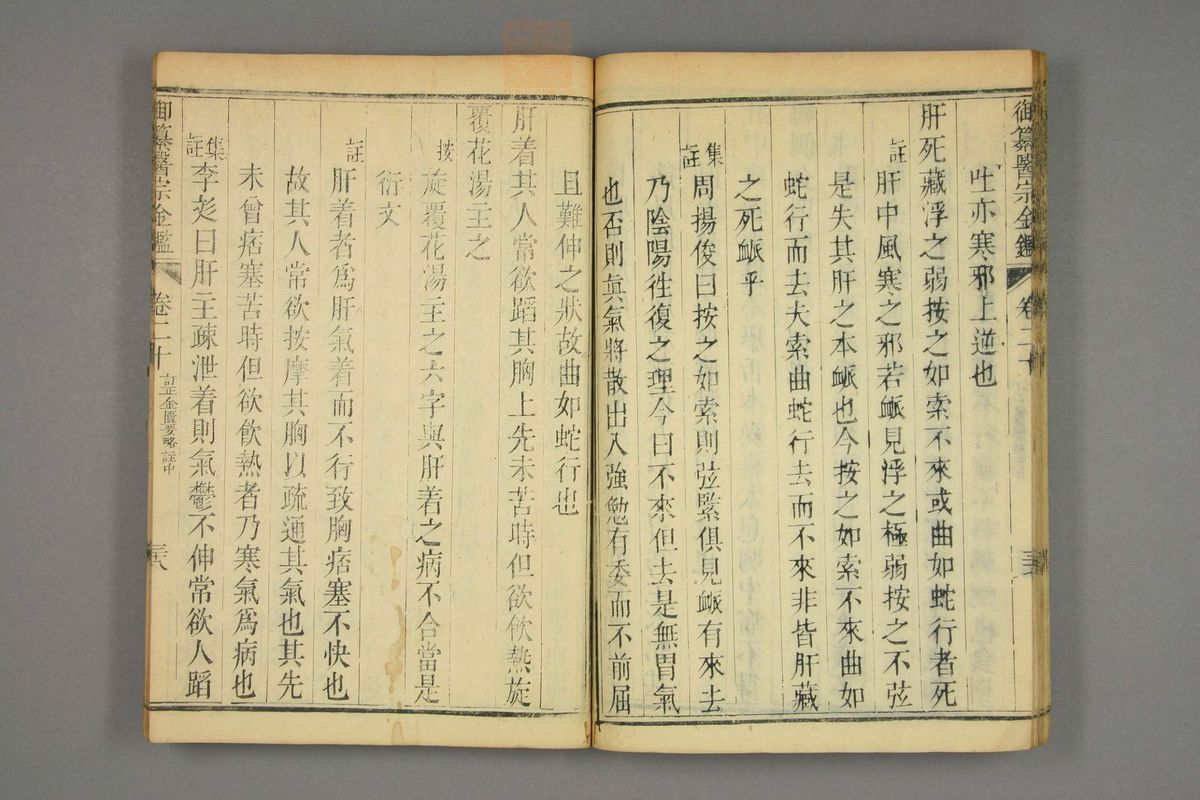 御纂醫宗金鑑 卷二十
吐亦寒邪上逆也
肝死藏浮之弱按之如索不來或曲如蛇行者死
註 肝中風寒之邪若衇見浮之極弱按之不弦
是失其肝之本衇也今按之如索不來曲如
蛇行而去夫索曲蛇行去而不來非皆肝藏
之死衇乎
集註 周揚俊曰按之如索則弦緊俱見衇有來去
乃陰陽徃復之理今曰不來但去是無胃氣
也否則眞氣將散出入強勉有委而不前屈
且難伸之狀故曲如蛇行也
肝着其人常欲蹈其胸上先未苦時但欲飲熱旋
覆花湯主之
按 旋覆花湯主之六字與肝着之病不合當是
衍文
註 肝着者爲肝氣着而不行致胸痞塞不快也
故其人常欲按摩其胸以疏通其氣也其先
未曾痞塞苦時但欲飮熱者乃寒氣爲病也
集註 李彣曰肝主疎泄着則氣鬱不伸常欲人蹈
御纂醫宗金鑑 卷二十 訂正金匱要略註中 三六